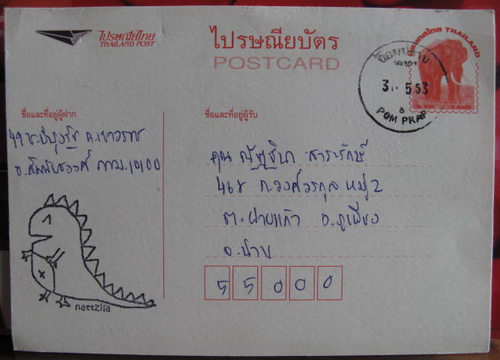 ไปรษณีย์ไทย
THAILAND POST
ไปรษณียบัตร
POSTCARD
ประเทศไทย THAILAND
ป้อมปราบ
3 . 5 53
POM PRAB
ชื่อและที่อยู่ผู้ฝาก
ชื่อและที่อยู่ผู้รับ
49 ถ.เยาวราช
กทม. 10100
คุณ ณัฐชิภา สาระรักษ์
468 ถ.วงศ์วรกุล หมู่ 2
ต. ฝายแก้ว อ. ภูเพียง
จ. น่าน
55000
naetzila